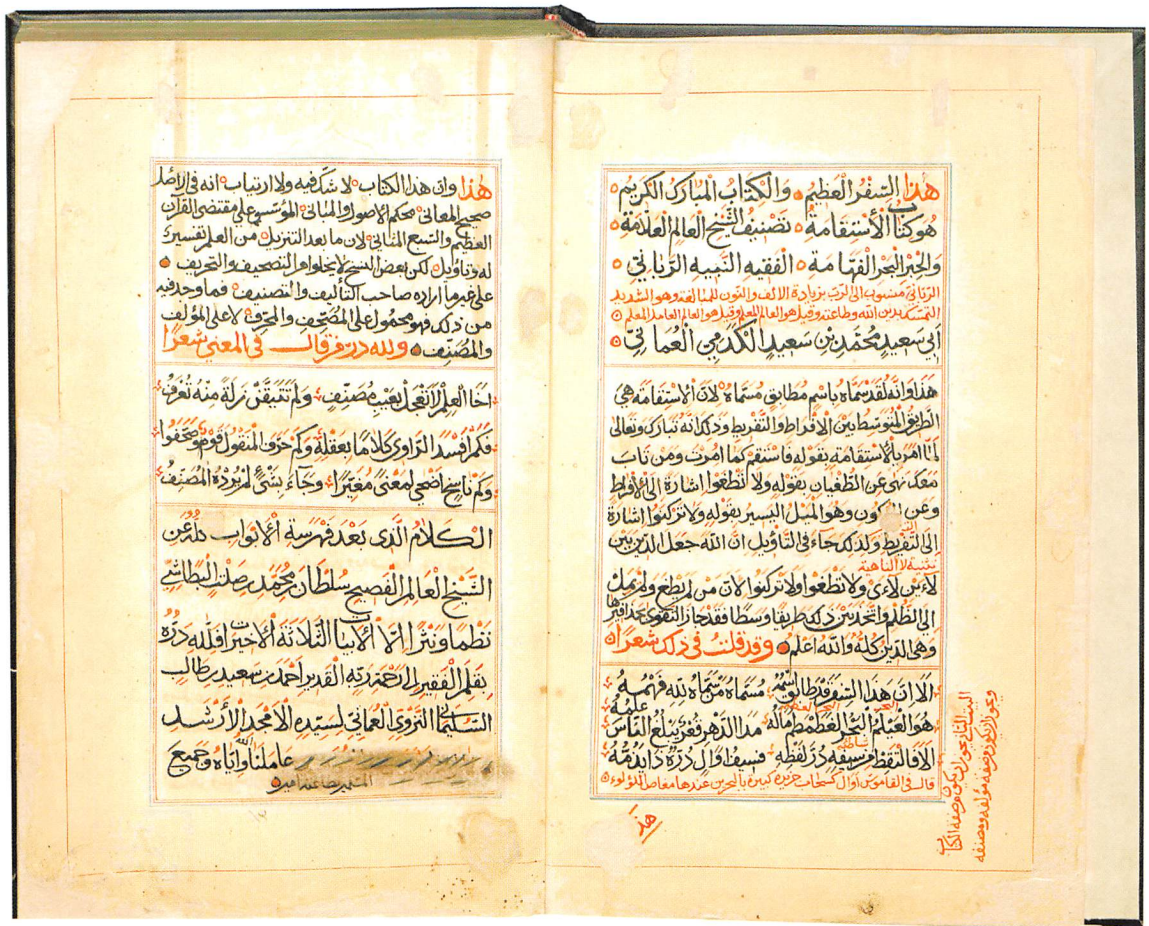 هذا السفر العظيم والكتاب المبارك الكريم
هو كتاب الاستقامة تصنيف الشيخ العالم العلامة
والحبر البحر الفهامة الفقيه النبيه الرباني
الرباني منسوب الى الرب بزيادة الالف والنون للمبالغة وهو الشديد
التمسك بدين الله وطاعته وقيل هو العالم المعلم وقيل هو العالم العامل المعلم
ابي سعيد محمد بن سعيد الكدمي العماني
هذا وانه لقد سماه باسم مطابق مسماه لان الاستقامة هي
الطريق المتوسط بين الافراط والتفريط وذلك انه تبارك وتعالى
لما امر بالاستقامة بقوله فاستقم كما امرت ومن تاب
معك نهى عن الطغيان بقوله ولا تطغوا اشارة الى الافراط
وعن الركون وهو الميل اليسير بقوله ولا تركنوا اشارة
الى التفريط ولذلك جاء في التأويل ان الله جعل الدين بين
تثنية لا الناهية
لاءين لاء ولا تطغوا ولا تركنوا لان من لم يطغ ولم يمل
الى الظلم واتخذ بين ذلك طريقا وسطا فقد حاز التقوى بحذافيرها
وهي الدين كله والله اعلم وقد قلت في ذلك شعرا
الا ان هذا السفر قد طابق اسمه مسماه من سماه لله فهمه
علمه
هو العيلم البحر الغطمطم ماله مدا الدهر قعر يبلغ الناس
الا فالتقط من سيفه در لفظه فسيف اوال دره ذا ندقه
قال في القاموس اوال كسحاب جزيرة كبيرة بالبحرين عندها مغاص اللؤلؤ
هذا
هذا وان هذا الكتاب لا شك فيه ولا ارتياب انه في الاصل
صحيح المعاني محكم الاصول والمباني المؤسس على مقتضى القرآن
العظيم والسبع المثاني لان ما بعد التنزيل من العلم تفسير
له وتاويل لكن بعض النسخ لا يخلوا من التصحيف والتحريف
على غير ما اراده صاحب التأليف والتصنيف فما وجد فيه
من ذلك فهو محمول على المصحف والمحرف لا على المؤلف
والمصنف ولله در من قال في المعنى شعرا
اخا العلم لا تعجل بعيب مصنف ولم تتيقن زلة منه تعرف
فكم افسد الراوي كلاما بعقله وكم حرف المنقول قوم وصحفوا
وكم ناسخ اضحى لمعنى مغيرا وجاء بشيء لم يرده المصنف
الكلام الذي بعد فهرسة الابواب
الشيخ العالم الفصيح سلطان بن محمد بن صلت البطاشي
نظما ونثرا الا الابيات الثلاثة الاخيرات ولله دره
بقلم الفقير الى رحمة ربه القدير احمد بن سعيد بن طالب
السليماني النزوي العماني لسيده الامجد الارشد
عاملنا الله واياه وجميع